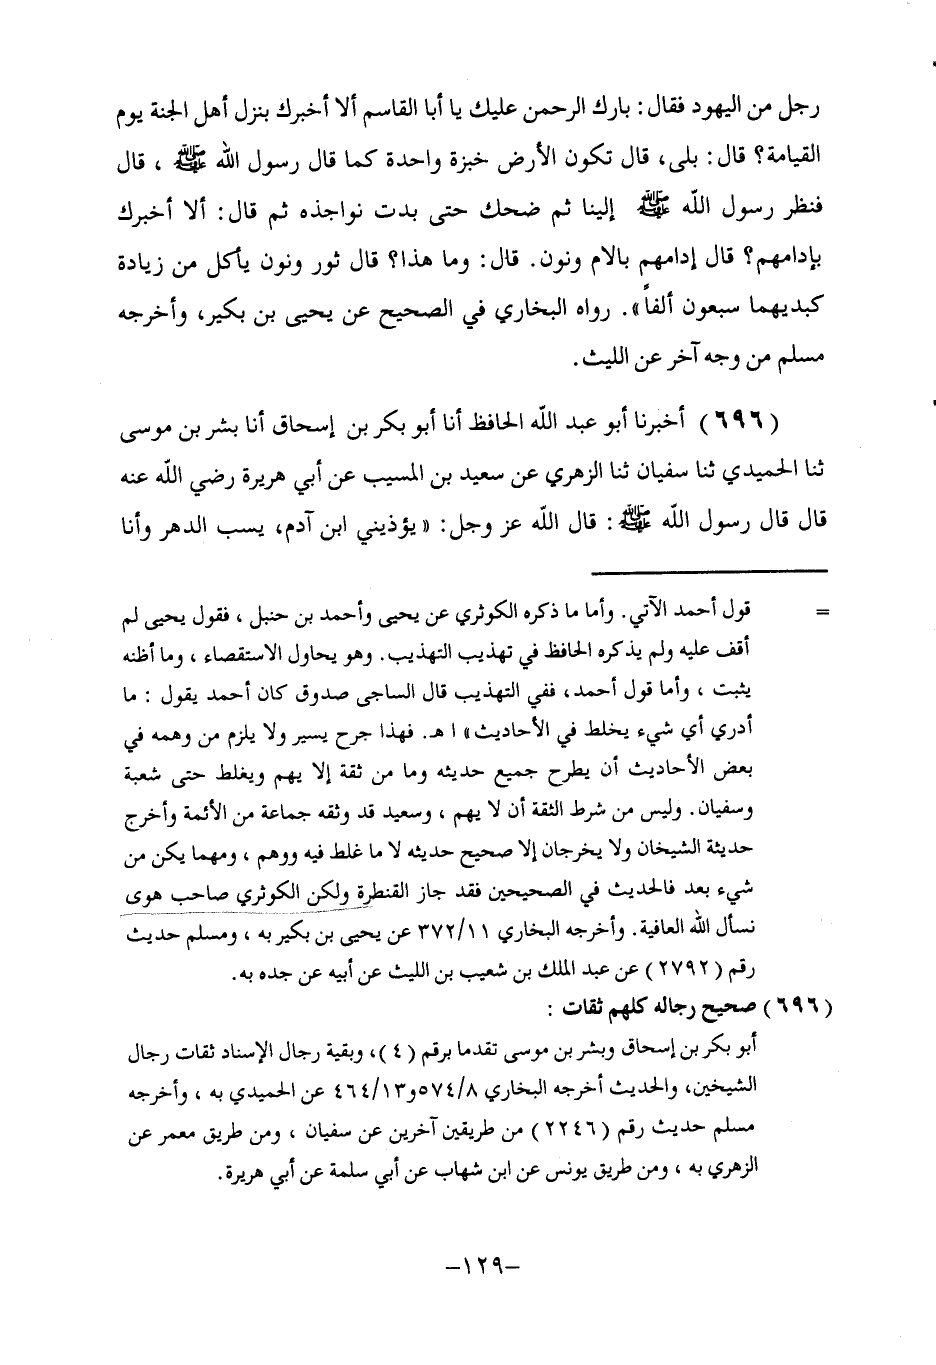 رجل من اليهود فقال: بارك الرحمن عليك يا أبا القاسم ألا أخبرك بنزل أهل الجنة يوم
القيامة؟ قال: بلى، قال تكون الأرض خبزة واحدة كما قال رسول الله ﷺ ، قال
فنظر رسول اللّه ﷺ إلينا ثم ضحك حتى بدت نواجذه ثم قال: ألا أخبرك
بإدامهم؟ قال إدامهم بالام ونون. قال: وما هذا؟ قال ثور ونون يأكل من زيادة
كبديهما سبعون ألفاً». رواه البخاري في الصحيح عن يحيى بن بكير، وأخرجه
مسلم من وجه آخر عن الليث.
(٦٩٦) أخبرنا أبو عبد اللّه الحافظ أنا أبو بكر بن إسحاق أنا بشر بن موسى
ثنا الحميدي ثنا سفيان ثنا الزهري عن سعيد بن المسيب عن أبي هريرة رضي اللّه عنه
قال قال رسول اللّه ﷺ: قال اللّه عز وجل: «يؤذيني ابن آدم، يسب الدهر وأنا
= قول أحمد الآتي. وأما ما ذكره الكوثري عن يحيى وأحمد بن حنبل ، فقول يحيى لم
أقف عليه ولم يذكره الحافظ في تهذيب التهذيب. وهو يحاول الاستقصاء ، وما أظنه
يثبت ، وأما قول أحمد، ففي التهذيب قال الساجي صدوق كان أحمد يقول : ما
أدري أي شيء يخلط في الأحاديث» ا هـ. فهذا جرح يسير ولا يلزم من وهمه في
بعض الأحاديث أن يطرح جميع حديثه وما من ثقة إلا يهم ويغلط حتى شعبة
وسفيان. وليس من شرط الثقة أن لا يهم ، وسعيد قد وثقه جماعة من الأئمة وأخرج
حديثة الشيخان ولا يخرجان إلا صحيح حديثه لا ما غلط فيه ووهم ، ومهما يكن من
شيء بعد فالحديث في الصحيحين فقد جاز القنطرة ولكن الكوثري صاحب هوى
نسأل اللّه العافية. وأخرجه البخاري ٣٧٢/١١ عن يحيى بن بكير به ، ومسلم حديث
رقم (٢٧٩٢) عن عبد الملك بن شعيب بن الليث عن أبيه عن جده به.
(٦٩٦) صحيح رجاله كلهم ثقات :
أبو بكر بن إسحاق وبشر بن موسى تقدما برقم (٤)، وبقية رجال الإسناد ثقات رجال
الشيخين، والحديث أخرجه البخاري ٥٧٤/٨ و٤٦٤/١٣ عن الحميدي به ، وأخرجه
مسلم حديث رقم (٢٢٤٦) من طريقين آخرين عن سفيان ، ومن طريق معمر عن
الزهري به ، ومن طريق يونس عن ابن شهاب عن أبي سلمة عن أبي هريرة.
-١٢٩-